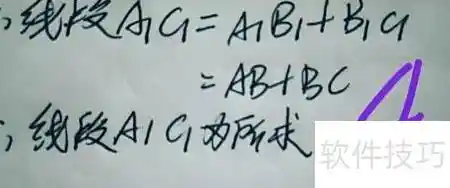 ∴线段A₁C₁=A₁B₁+B₁C₁
=AB+BC
∴线段A₁C₁为所求
软件技巧